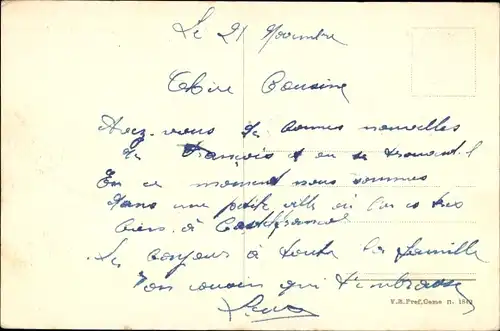 Le 21 Novembre
Chère Cousine
Avez-vous de bonnes nouvelles
de François et ou se trouvent-il
En ce moment nous sommes
dans une petite ville ou l'on es très
bien à
Le bonjour à toute la famille
Ton cousin qui t'embrasse
V.R.Pref.Como n. 1842